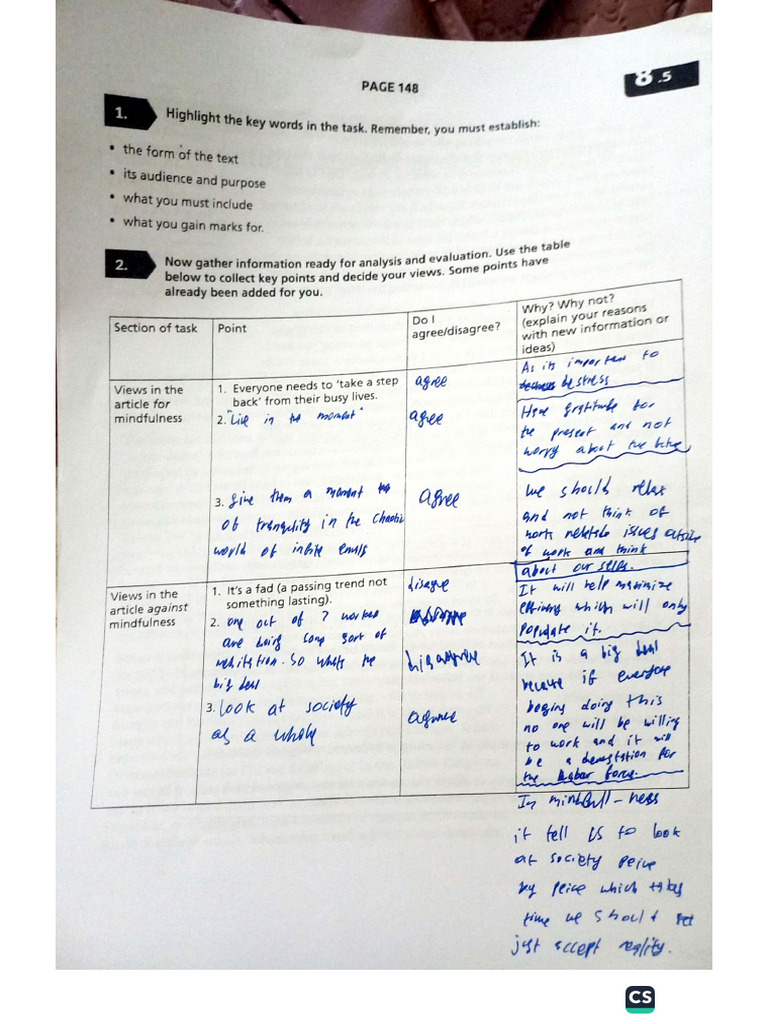 PAGE 148
8.5
1.
Highlight the key words in the task. Remember, you must establish:
• the form of the text
• its audience and purpose
• what you must include
• what you gain marks for.
2.
Now gather information ready for analysis and evaluation. Use the table
below to collect key points and decide your views. Some points have
already been added for you.
Section of task
Point
Do I
agree/disagree?
Why? Why not?
(explain your reasons
with new information or
ideas)
Views in the
article for
mindfulness
1. Everyone needs to 'take a step
back' from their busy lives.
agree
As its important to
stress
2. "Live in the moment"
agree
Have gratitude for
the present and not
worry about the
3. give them a moment
of tranquility in the chaotic
world of infite emails
agree
we should relax
and not think of
work issues outside
of work and think
about our selfs.
Views in the
article against
mindfulness
1. It's a fad (a passing trend not
something lasting).
disagre
It will help maximize
which will only
populate it.
2. one out of 7
are doing some sort of
. So whats the
big deal
It is a big deal
because if everyone
begins doing this
no one will be willing
to work and it will
be a for
the labor force.
3. look at society
as a whole
agree
In mindfull-ness
it tell us to look
at society peice
by peice which takes
time we should
just accept reality.
CS